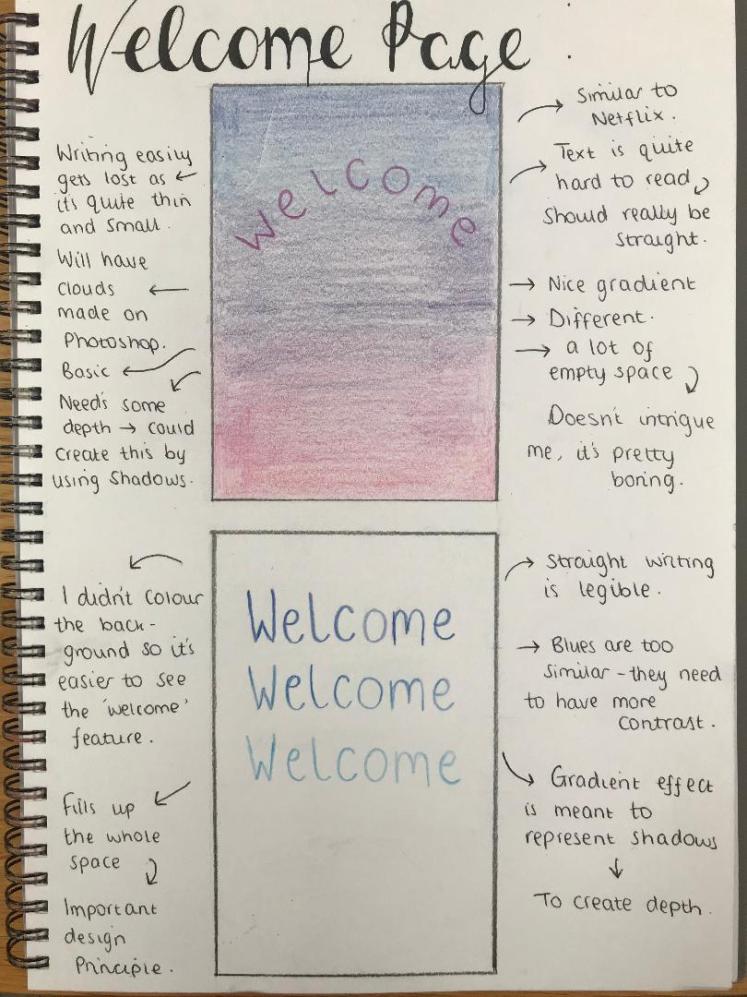 Welcome Page
Writing easily
gets lost as
it's quite thin
and small.
Will have
clouds
made on
Photoshop.
Basic
Needs some
depth → could
create this by
using shadows.
welcome
Similar to
Netflix.
Text is quite
hard to read
should really be
straight.
→ Nice gradient
→ Different.
→ a lot of
empty space
Doesn't intrigue
me, it's pretty
boring.
I didn't colour
the back-
ground so it's
easier to see
the 'welcome'
feature.
Fills up
the whole
space
Important
design
Principle.
Welcome
Welcome
Welcome
Straight writing
is legible.
→ Blues are too
similar - they need
to have more
contrast.
Gradient effect
is meant to
represent shadows
↓
To create depth.